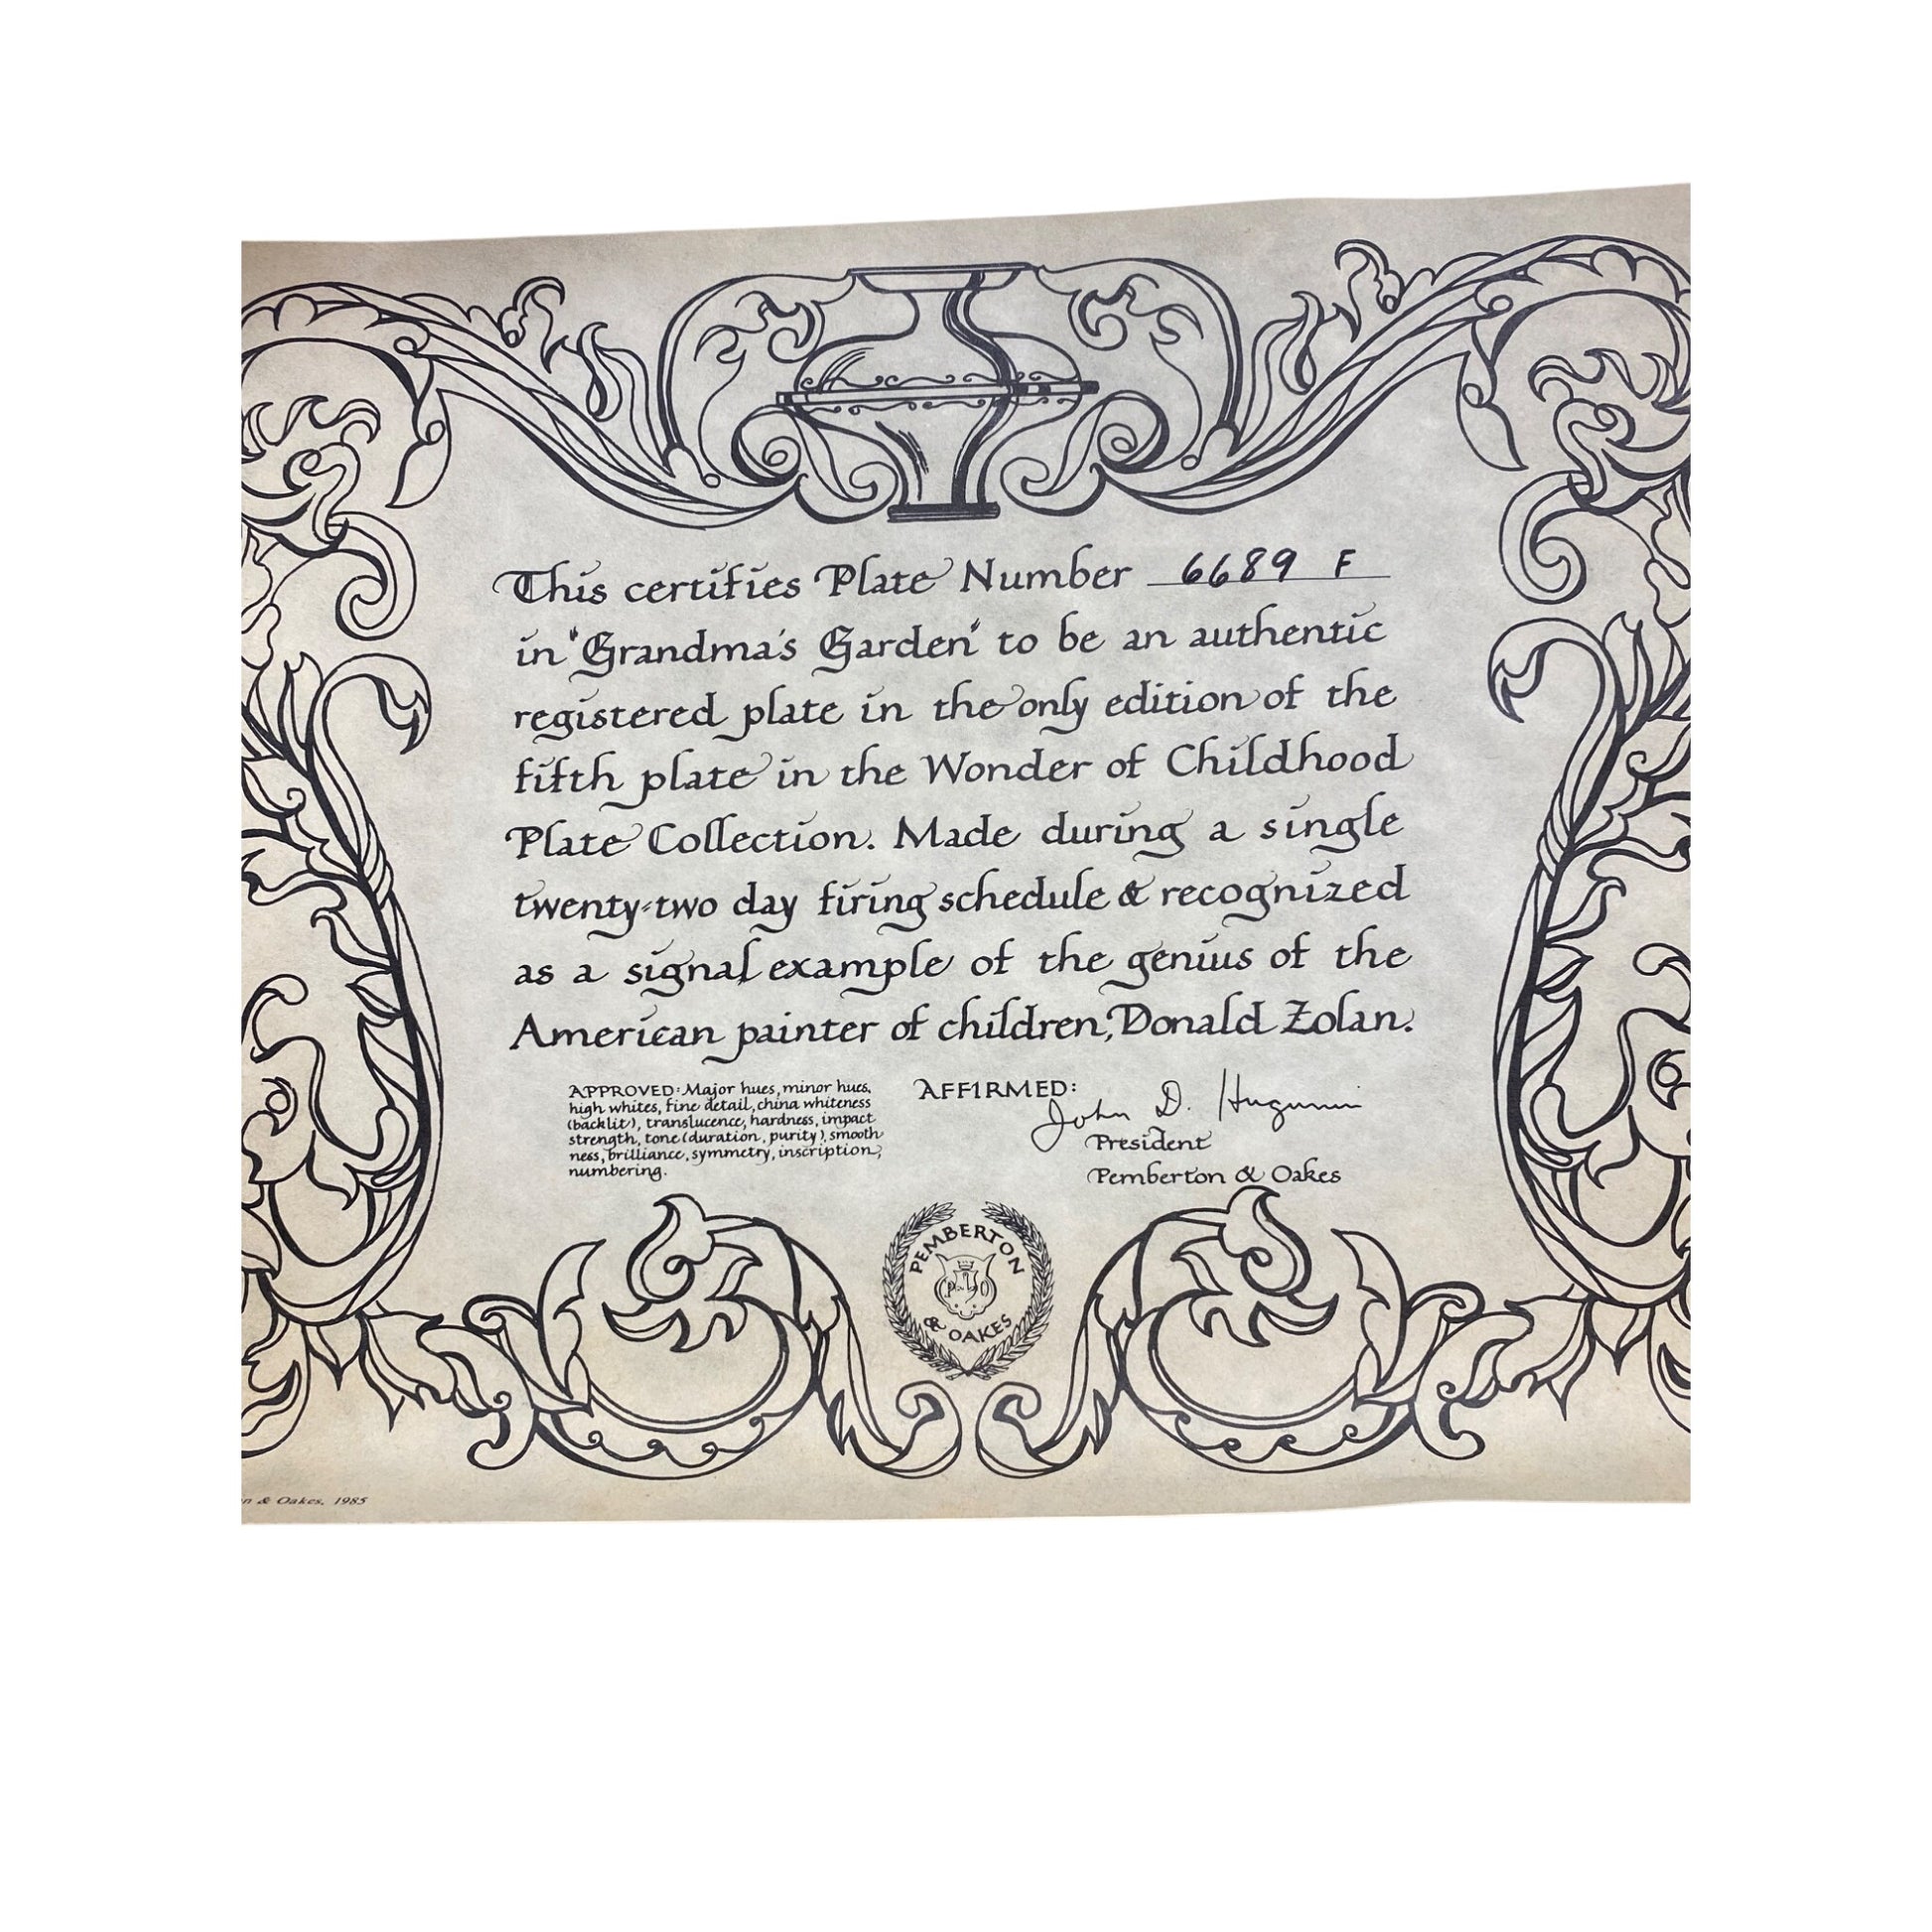 This certifies Plate Number 6689 F
in "Grandma's Garden" to be an authentic
registered plate in the only edition of the
fifth plate in the Wonder of Childhood
Plate Collection. Made during a single
twenty-two day firing schedule & recognized
as a signal example of the genius of the
American painter of children, Donald Zolan.
APPROVED: Major hues, minor hues,
high whites, fine detail, china whiteness
(backlit), translucence, hardness, impact
strength, tone (duration, purity), smooth
ness, brilliance, symmetry, inscription,
numbering.
AFFIRMED:
John D.
President
Pemberton & Oakes
PEMBERTON
& OAKES
& Oakes, 1985